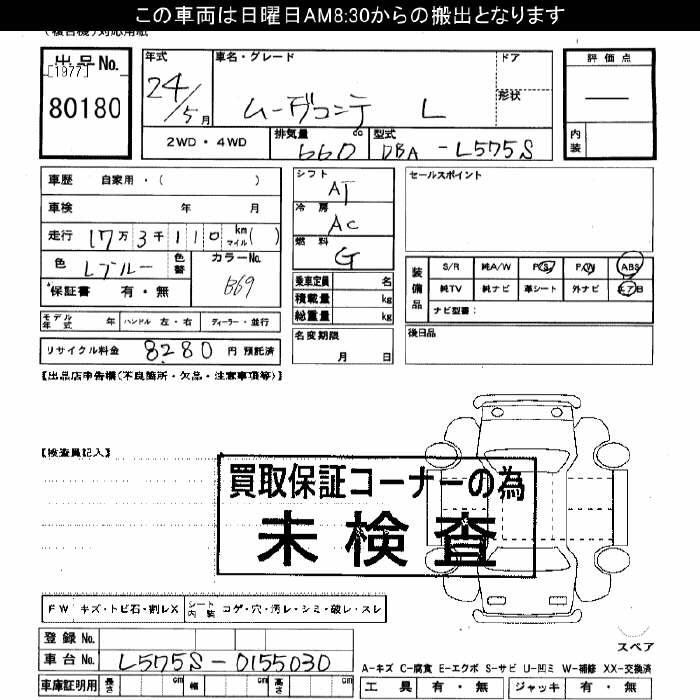 この車両は日曜日AM8:30からの搬出となります
(複合機)対応用紙
出品No.
[1977]
80180
年式
24/5月
車名・グレード
ムーヴコンテ L
ドア
形状
2WD・4WD
排気量
660 cc
型式
DBA -L575S
評価点
内装
車歴 自家用・( )
車検 年 月
走行 17万3千110 km マイル( )
色 Lブルー 色替 カラーNo. B69
*保証書 有・無
モデル年式 年 ハンドル 左・右 ディーラー・並行
リサイクル料金 8280 円 預託済
シフト AT
冷房 AC
燃料 G
乗車定員 名
積載量 kg
総重量 kg
名変期限
月 日
セールスポイント
装備品
S/R 純A/W P/S P/W ABS
純TV 純ナビ 革シート 外ナビ エアB
ナビ型番:
後日品
【出品店申告欄(不良箇所・欠品・注意事項等)】
【検査員記入】
買取保証コーナーの為
未検査
FW キズ・トビ石・割レX シート内装 コゲ・穴・汚レ・シミ・破レ・スレ
スペア
登録No.
車台No. L575S-0155030
車庫証明用 長さ cm 幅 cm 高さ cm
A-キズ C-腐食 E-エクボ S-サビ U-凹ミ W-補修 XX-交換済
工具 有・無 ジャッキ 有・無